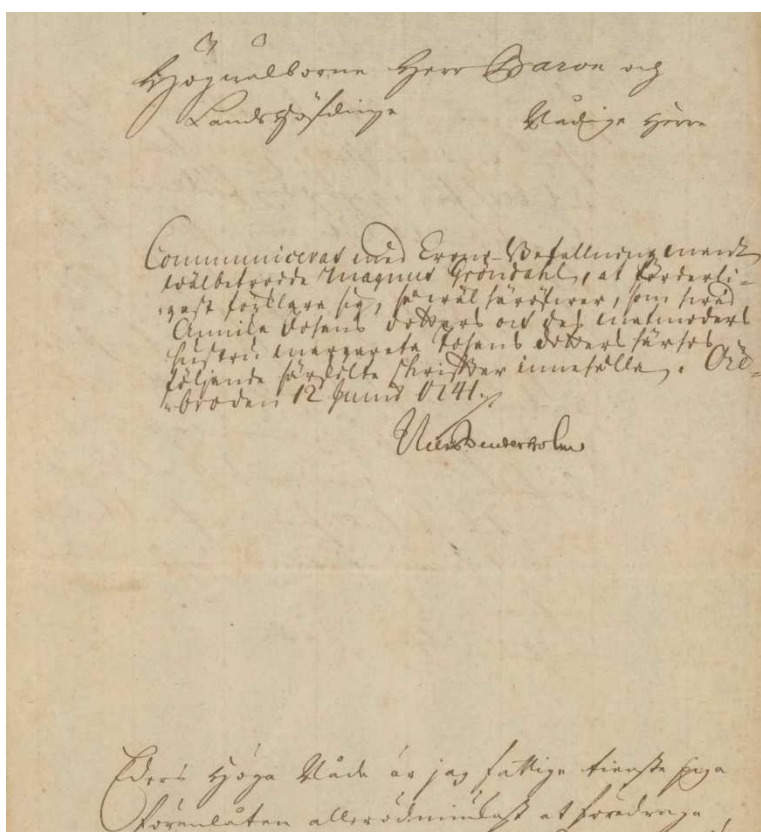 Högwälborne Herr Baron och
Landshöfdinge Nådige Herre
Communiceras med Crono-Befallningsmannen
wälbetrodde Magnus Gröndahl, at förderli-
gast förklara sig, så wäl häröfwer, som hwad
Annika Josens dotters och des matmoders
hustru Margareta Josens dotters härhos
följande särskilte skrifter innehålla. Öre-
bro den 12 Junii 1741.
Eders Höga Nåde är jag fattige tienste piga
förenlåten allerödmiukast at föredraga,